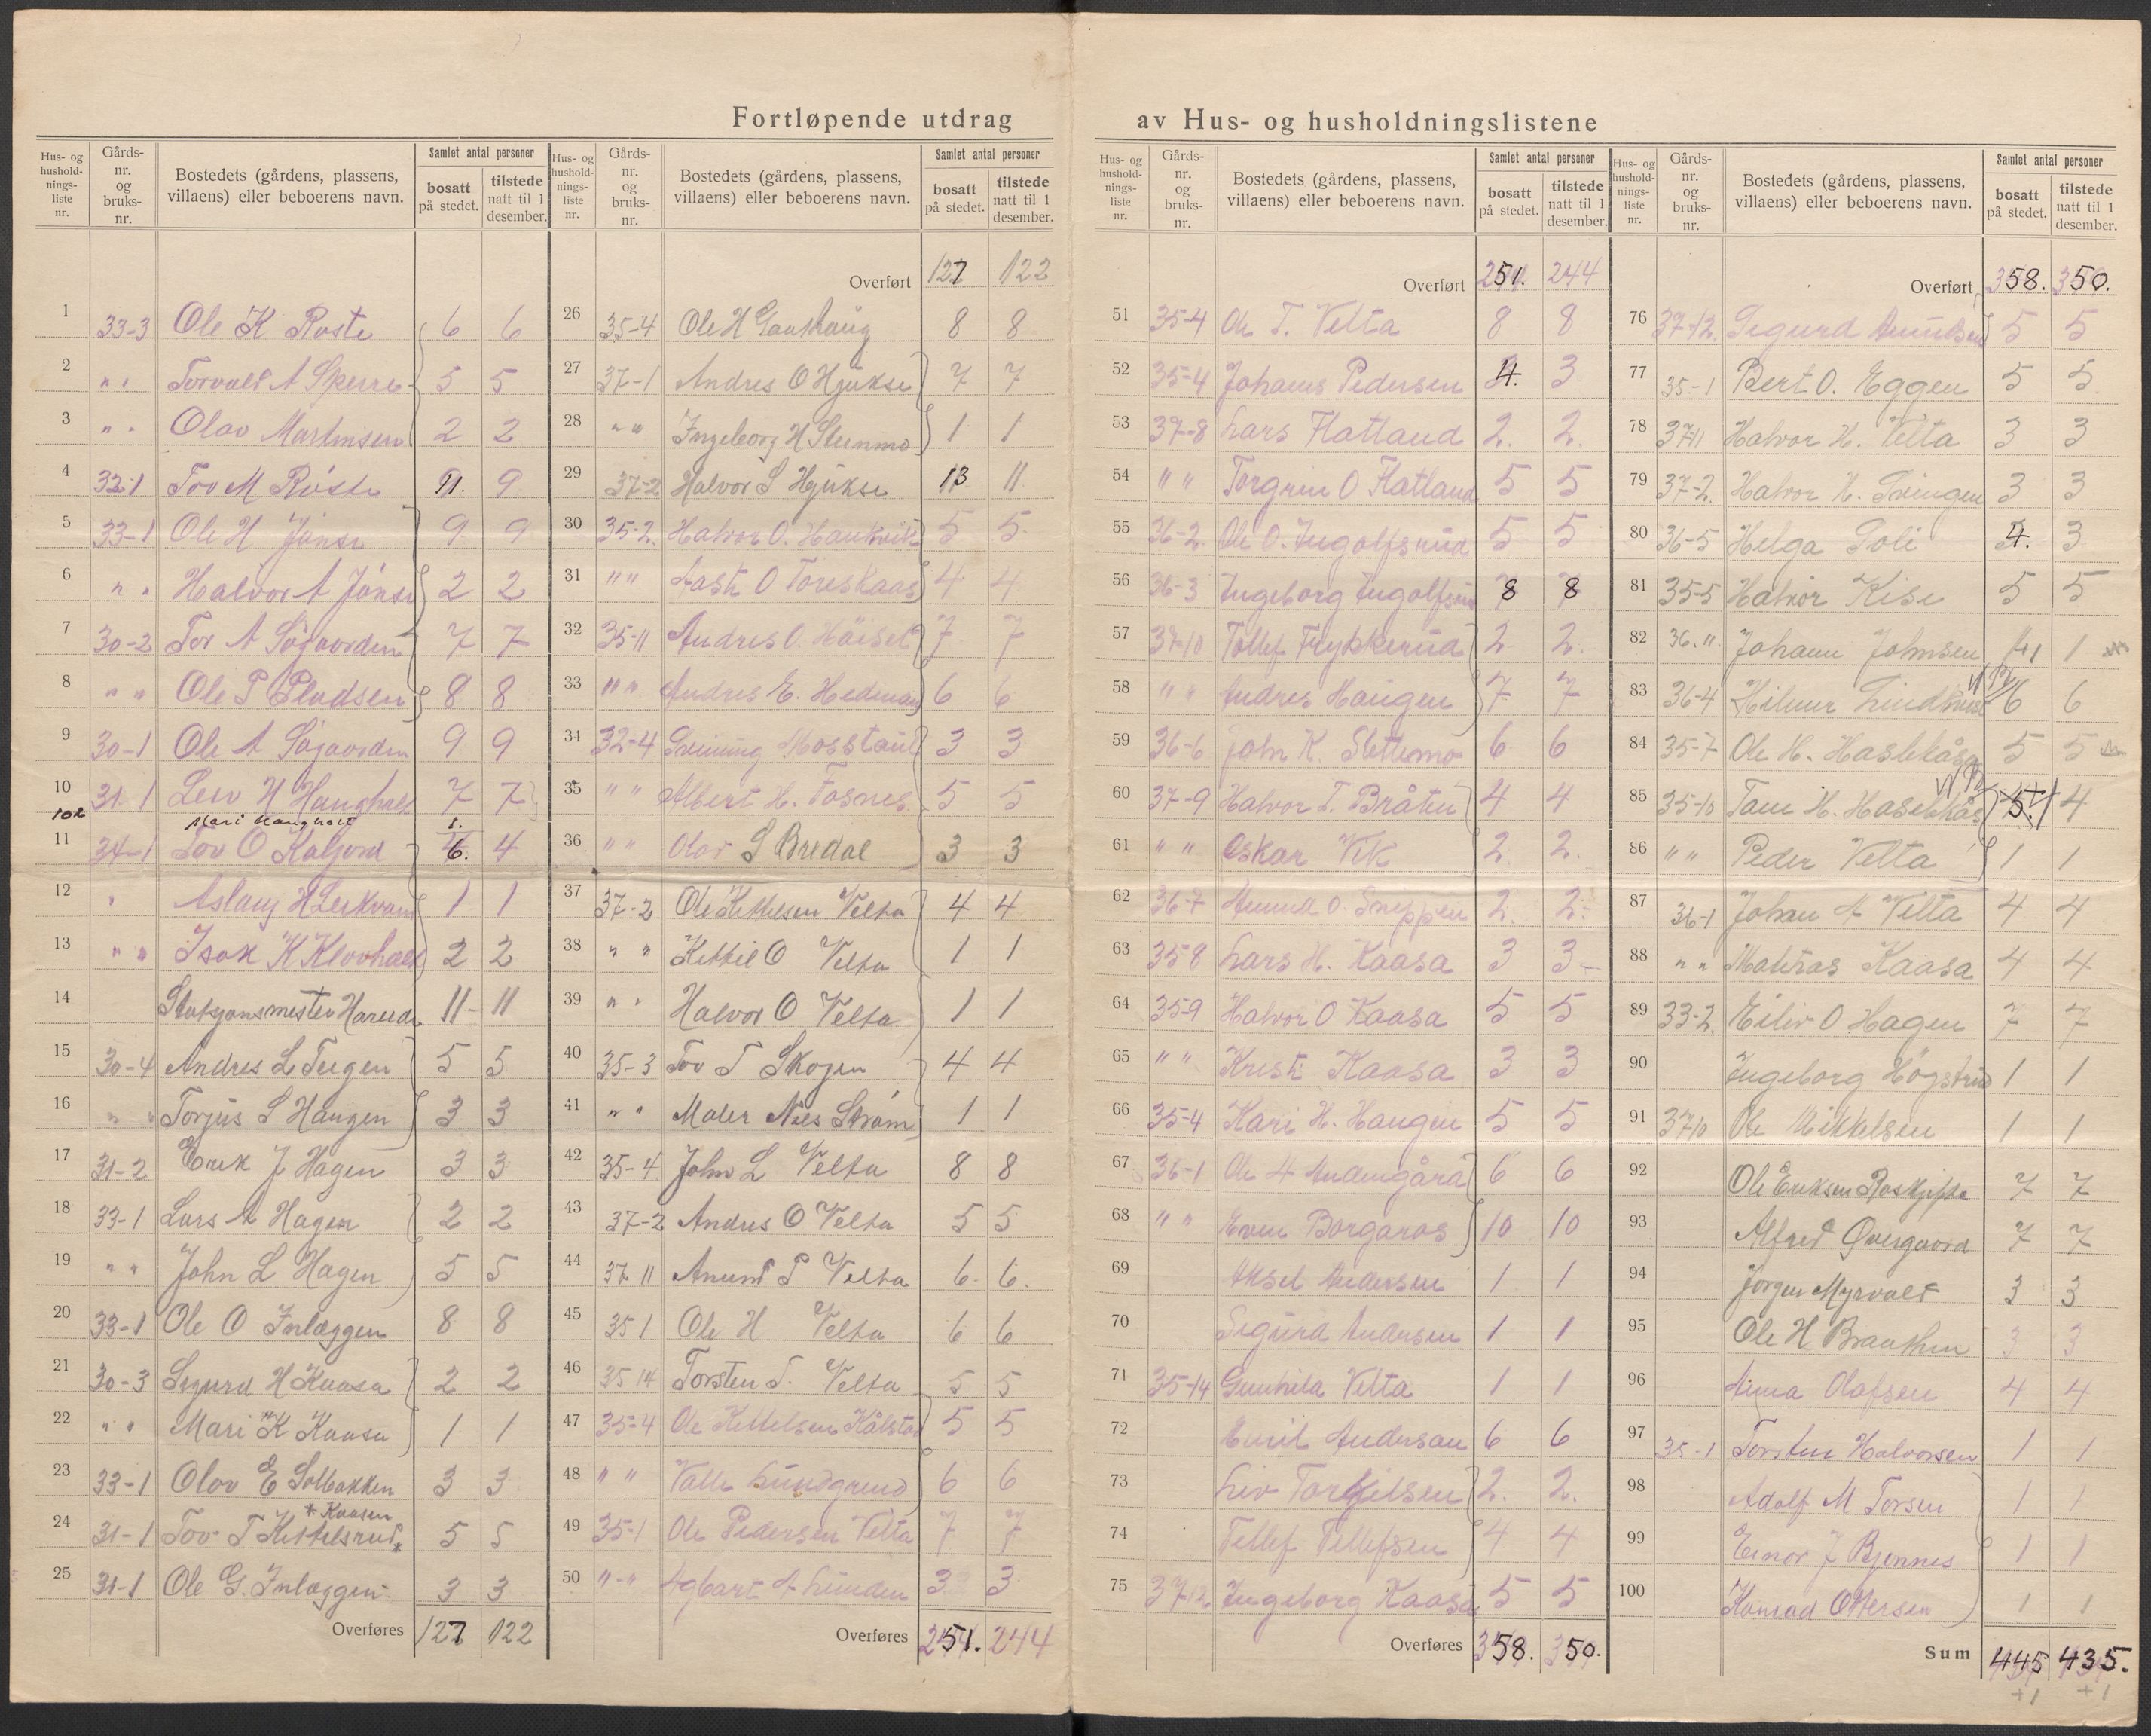 Fortløpende utdrag av Hus- og husholdningslistene
Hus- og husholdningsliste nr. | Gårds-nr. og bruks-nr. | Bostedets (gårdens, plassens, villaens) eller beboerens navn. | Samlet antal personer | bosatt på stedet. | tilstede natt til 1 desember.
1 33-3 Ole K Roste 6 6
2 " " Torvald A Sperre 5 5
3 " " Olav Martinsen 2 2
4 32-1 Tov M Röste 11. 9
5 33-1 Ole H Jönse 9 9
6 " " Halvor A Jönse 2 2
7 30-2 Tor A Sögaarden 7 7
8 " " Ole P Pladsen 8 8
9 30-1 Ole A Sögaarden 9 9
10 31-1 Leiv H Haugholt 7 7
102 Mari Haugholt 1.
11 34-1 Tov O Kaljord 6. 4
12 " Aslaug H Lerkvam 1 1
13 " " Isak K Klovholt 2 2
14 Statsjonsmester Harud 11 11
15 30-4 Andres L Teigen 5 5
16 " " Torjus S Haugen 3 3
17 31-2 Erik J Hagen 3 3
18 33-1 Lars A Hagen 2 2
19 " " John L Hagen 5 5
20 33-1 Ole O Inlæggen 8 8
21 30-3 Sigurd H Kaasa 2 2
22 " " Mari K Kaasa 1 1
23 33-1 Olav E Solbakken 3 3
* Kaasen
24 31-1 Tov T Kittelsrud * 5 5
25 31-1 Ole G. Inlæggen 3 3
Overføres 127 122
Overført 127 122
26 35-4 Ole H Gaashaug 8 8
27 37-1 Andres O Hjukse 7 7
28 " " Ingeborg H Steinmo 1 1
29 37-2 Halvor S Hjukse 13 11
30 35-2. Halvor O. Haukvik 5 5
31 " " Aaste O Toreskaas 4 4
32 35-11 Andres O. Höiset 7 7
33 " " Andres E. Hedman 6 6
34 32-4 Sveinung Mosstaul 3 3
35 " " Albert H. Fosnes 5 5
36 " " Olav S Bredal 3 3
37 37-2 Ole Kittelsen Velta 4 4
38 " " Kittil O Velta 1 1
39 " " Halvor O Velta 1 1
40 35-3 Tov T Skogen 4 4
41 " " Maler Nils Ström 1 1
42 35-4 John L Velta 8 8
43 37-2 Andres O Velta 5 5
44 37 11 Anund P Velta 6. 6.
45 35 1 Ole H Velta 6 6
46 35 14 Torsten T. Velta 5 5
47 35-4 Ole Kittelsen Kålstad 5 5
48 " " Valle Lundgrund 6 6
49 35-1 Ole Pedersen Velta 7 7
50 "-" Agbart A Linden 3 3
Overføres 251. 244
Overført 251. 244
51 35-4 Ole T. Velta 8 8
52 35-4 Johans Pedersen 4. 3
53 37-8 Lars Flatland 2. 2.
54 " " Torgrim O Flatland 5 5
55 36-2. Ole O. Ingolfsrud 5 5
56 36-3 Ingeborg Ingolfsrud 8 8
57 37-10 Tollef Frykkerud 2 2.
58 " " Andres Haugen 7 7
59 36-6 John K. Slettemo 6 6
60 37-9 Halvor T. Bråten 4 4
61 " " Oskar Vik 2. 2.
62 36-7 Amund O. Sneppen 2. 2.
63 35 8 Lars H. Kaasa 3 3
64 35-9 Halvor O Kaasa 5 5
65 " " Kristi Kaasa 3 3
66 35-4 Kari H. Haugen 5 5
67 36-1 Ole A Andengård 6 6
68 " " Even Borgaros 10 10
69 Aksel Andersen 1 1
70 Sigurd Andersen 1 1
71 35-14 Gunhild Velta 1 1
72 Emil Anderson 6 6
73 Liv Torkjelsen 2. 2.
74 Tellef Tellefsen 4 4
75 37-12. Ingeborg Kaasa 5 5
Overføres 358. 350.
Overført 358. 350.
76 37-12. Sigurd Amundsen 5 5
77 35-1 Bert O. Eggen 5 5
78 37-11 Halvor H. Velta 3 3
79 37-2. Halvor H. Svingen 3 3
80 36-5 Helga Soli 4. 3
81 35-5 Halvor Kise 5 5
82 36.11. Johann Johnsen 1 1
83 36-4 Hilmer Lindkvist 6 6
84 35-7 Ole H. Haslekåsa 5 5
85 35-10 Tam H. Haslekås 5 4
86 " " Peder Velta 1 1
87 36-1 Johan A Velta 4 4
88 " " Matias Kaasa 4 4
89 33-2. Eiliv O. Hagen 7 7
90 Ingeborg Högstrud 1 1
91 37 10 Ole Mikkelsen 1 1
92 Ole Eriksen Raskjifta 7 7
93 Alfred Øvergaard 7 7
94 Jörgen Myrvold 3 3
95 Ole H Braathen 3 3
96 Anna Olafsen 4 4
97 35-1 Torsten Halvorsen 1 1
98 Adolf M Torsen 1 1
99 Einar J Bjennes 1 1
100 Konrad Ottersen 1 1
Sum 445 435.
+1 +1